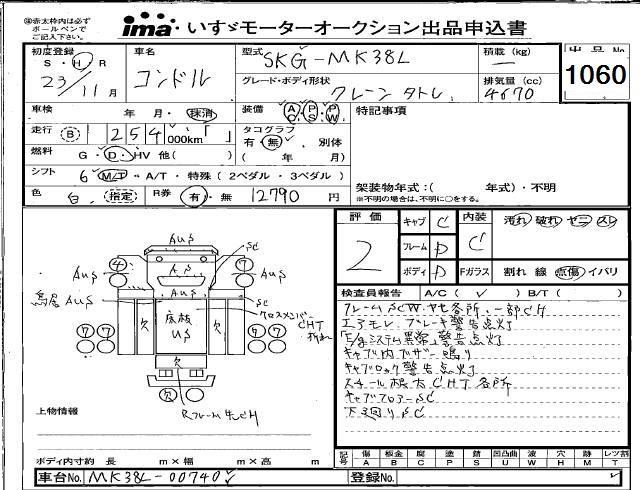 ㊟赤太枠内は必ず
ボールペンで
ご記入下さい。
ima いすゞモーターオークション出品申込書
初度登録
S・H・R
23/11月
車名
コンドル
型式
SKG-MK38L
積載 (kg)
ー
出品No
1060
グレード・ボディ形状
クレーン
排気量 (cc)
4670
車検
年 月・抹消
装備
AC PS PW
特記事項
走行 B 1 254 000km「 」
タコグラフ
有・無・別体
( 年 月)
燃料 G・D・HV 他( )
シフト 6 M/T・A/T・特殊(2ペダル・3ペダル)
架装物年式:( 年式)・不明
※不明の場合は、不明に○をする。
色 白 (指定) R券 有・無 12790 円
評価
2
キャブ C
フレーム D
ボディ D
内装
C
汚れ 破れ ヤニ スレ
Fガラス 割れ 線 点傷 イバリ
検査員報告 A/C( ✓ ) B/T( )
フレームSCW. ヤセ各所、一部CH
エアモレ. ブレーキ警告点灯
E/gシステム異常警告点灯
キャブ内ブザー鳴り
キャブロック警告点灯
スチール CHT各所
キャブフロアーSC
下廻りSC
AUS
SC
4
7
AUS
AUS
AS
AUS
SC
鳥居AUS
クロスメンバー
CHT
7 7
欠
床板
US
欠
7 7
欠
欠
上物情報
ボディ内寸約 長 m×幅 m×高 m
記号
傷 板金 腐 塗 錆 凹凸曲 波 穴 跡 レツ割
A B C P S U W H M T
車台No. MK38L-00740
登録No.